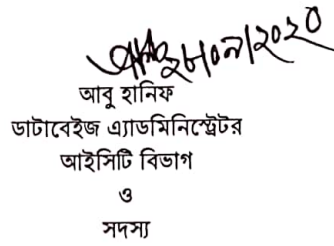 ২৮/০৯/২০২০
আবু হানিফ
ডাটাবেইজ এ্যাডমিনিস্ট্রেটর
আইসিটি বিভাগ
ও
সদস্য